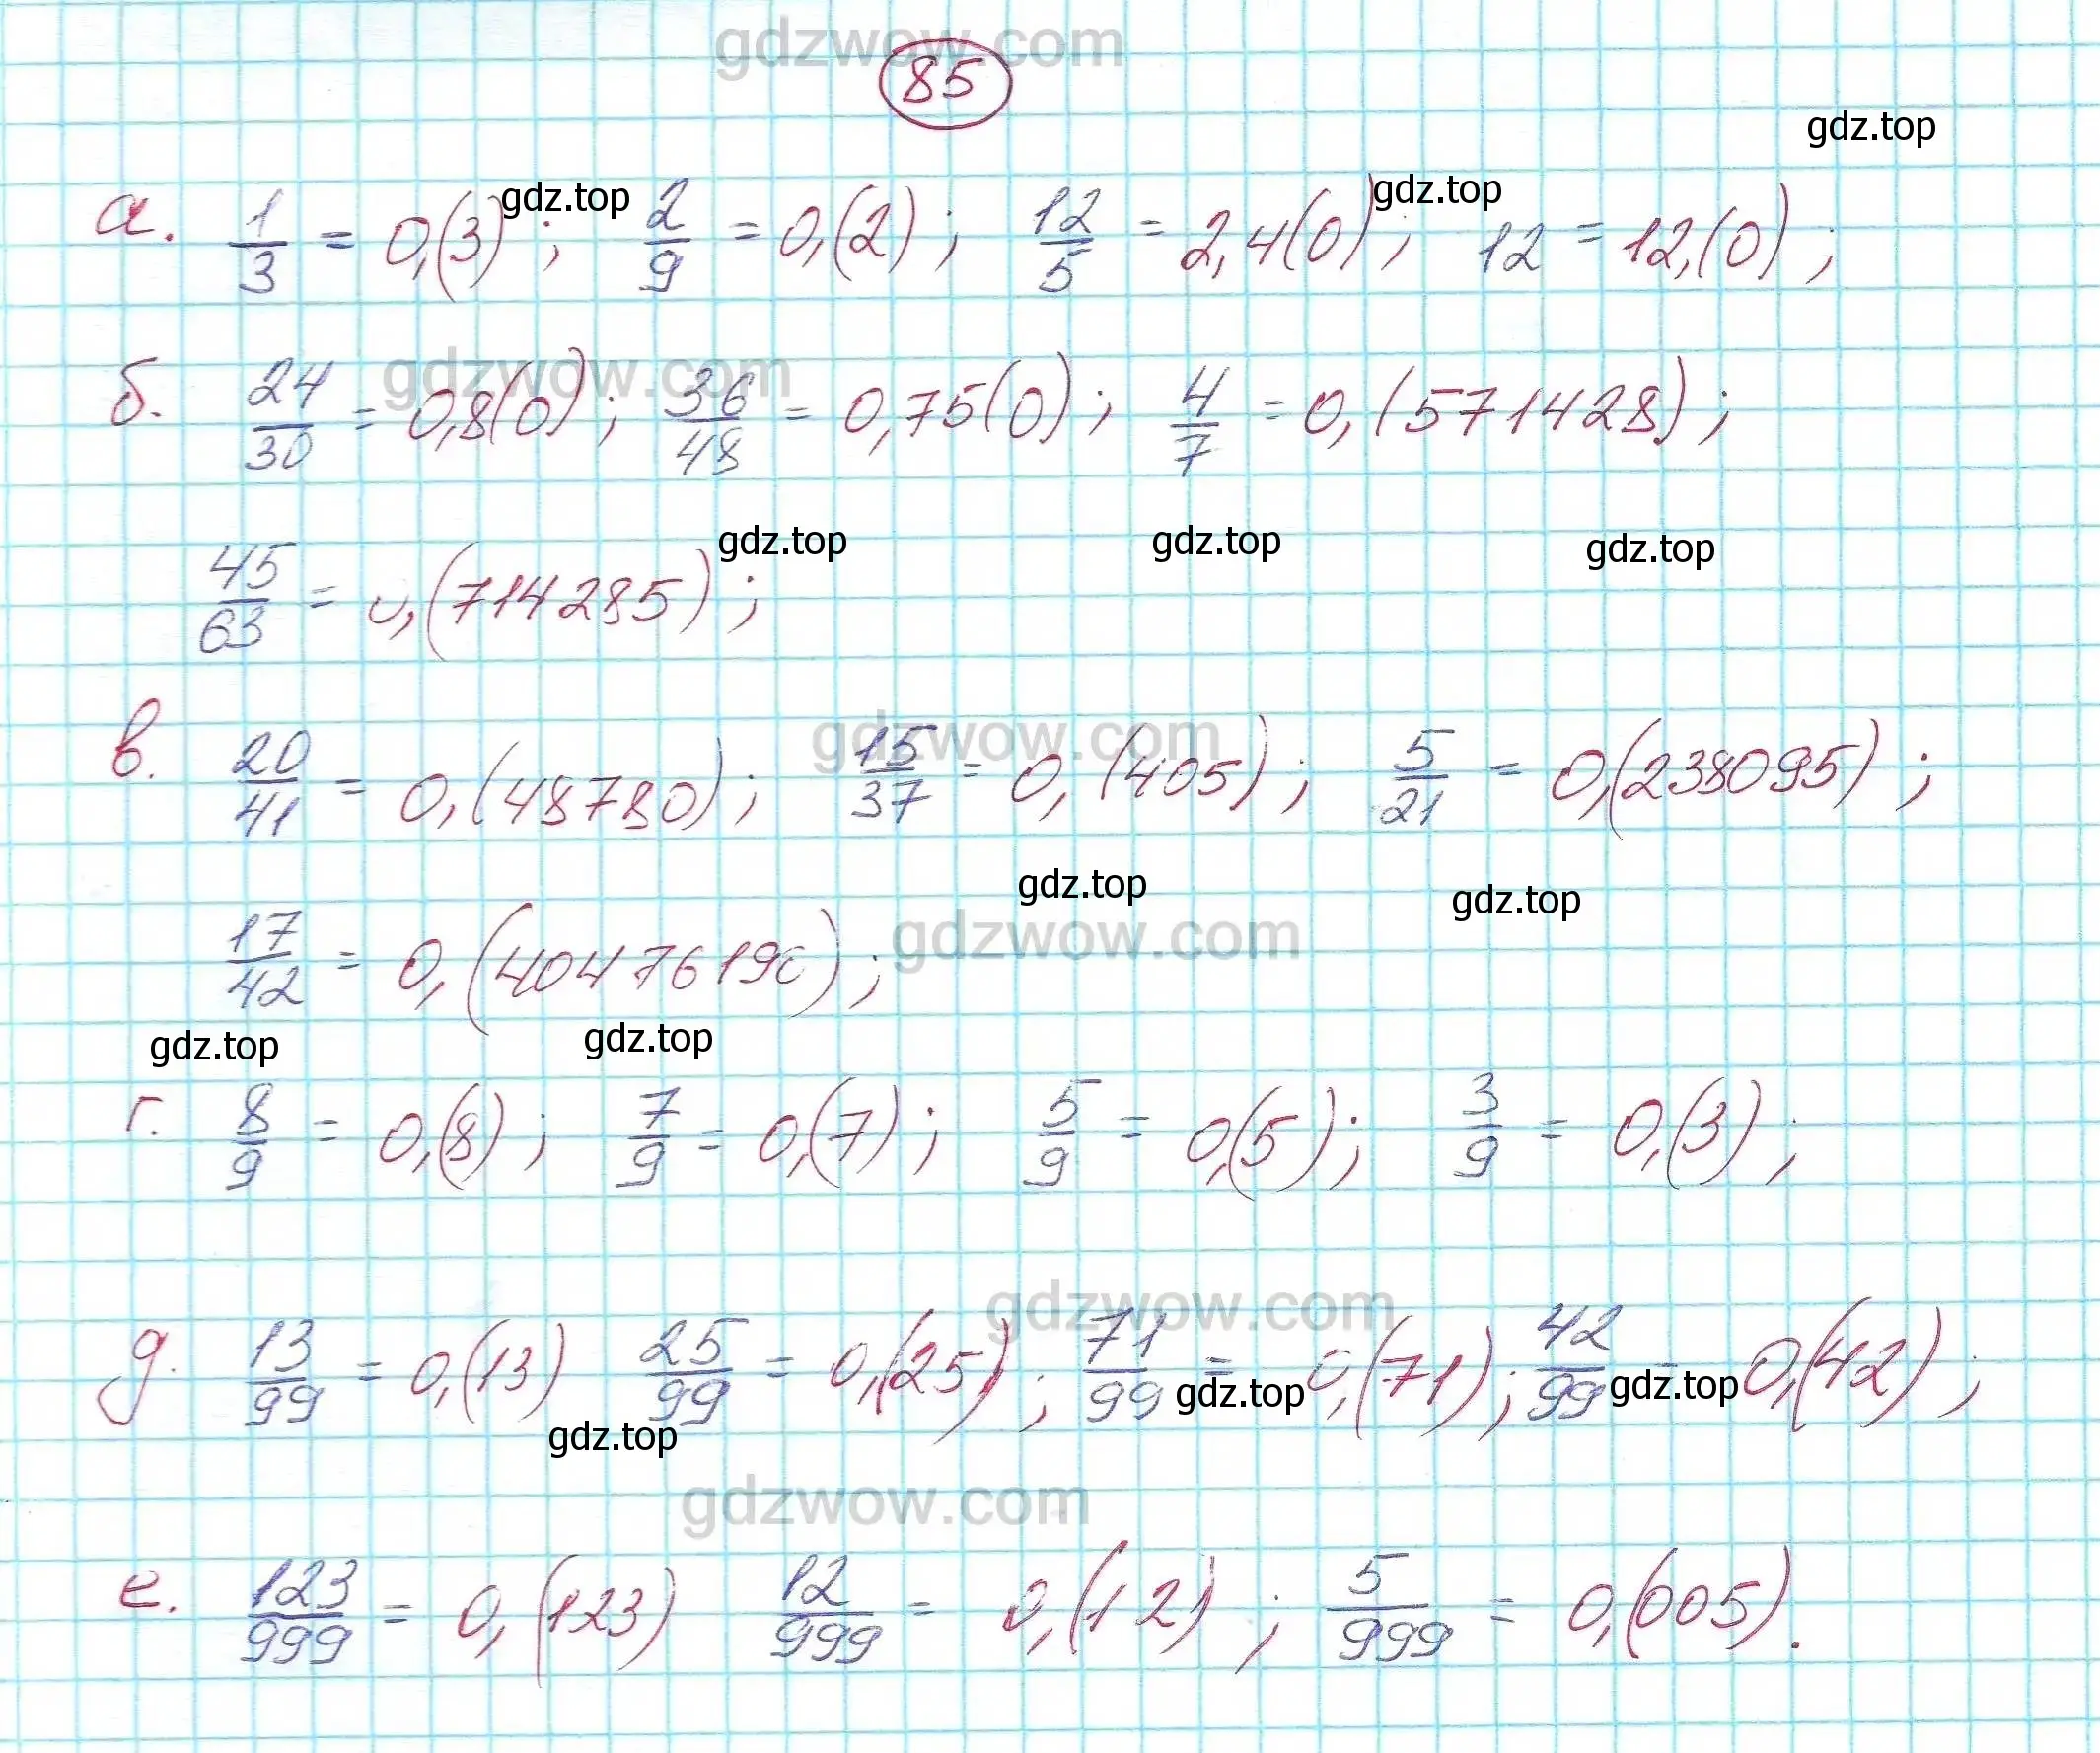 gdzwow.com
85
gdz.top
а. 1/3 = 0,(3) ; 2/9 = 0,(2) ; 12/5 = 2,4(0) ; 12 = 12,(0) ;
gdz.top gdz.top
б. 24/30 = 0,8(0) ; 36/48 = 0,75(0) ; 4/7 = 0,(571428) ;
gdzwow.com
gdz.top gdz.top gdz.top
45/63 = 0,(714285) ;
в. 20/41 = 0,(48780) ; 15/37 = 0,(405) ; 5/21 = 0,(238095) ;
gdzwow.com
gdz.top gdz.top
17/42 = 0,(40476190) ;
gdzwow.com
gdz.top gdz.top
г. 8/9 = 0,(8) ; 7/9 = 0,(7) ; 5/9 = 0,(5) ; 3/9 = 0,(3) ;
gdzwow.com
д. 13/99 = 0,(13) 25/99 = 0,(25) ; 71/99 = 0,(71) ; 42/99 = 0,(42) ;
gdz.top gdz.top gdz.top
gdzwow.com
е. 123/999 = 0,(123) 12/999 = 0,(12) ; 5/999 = 0,(005).